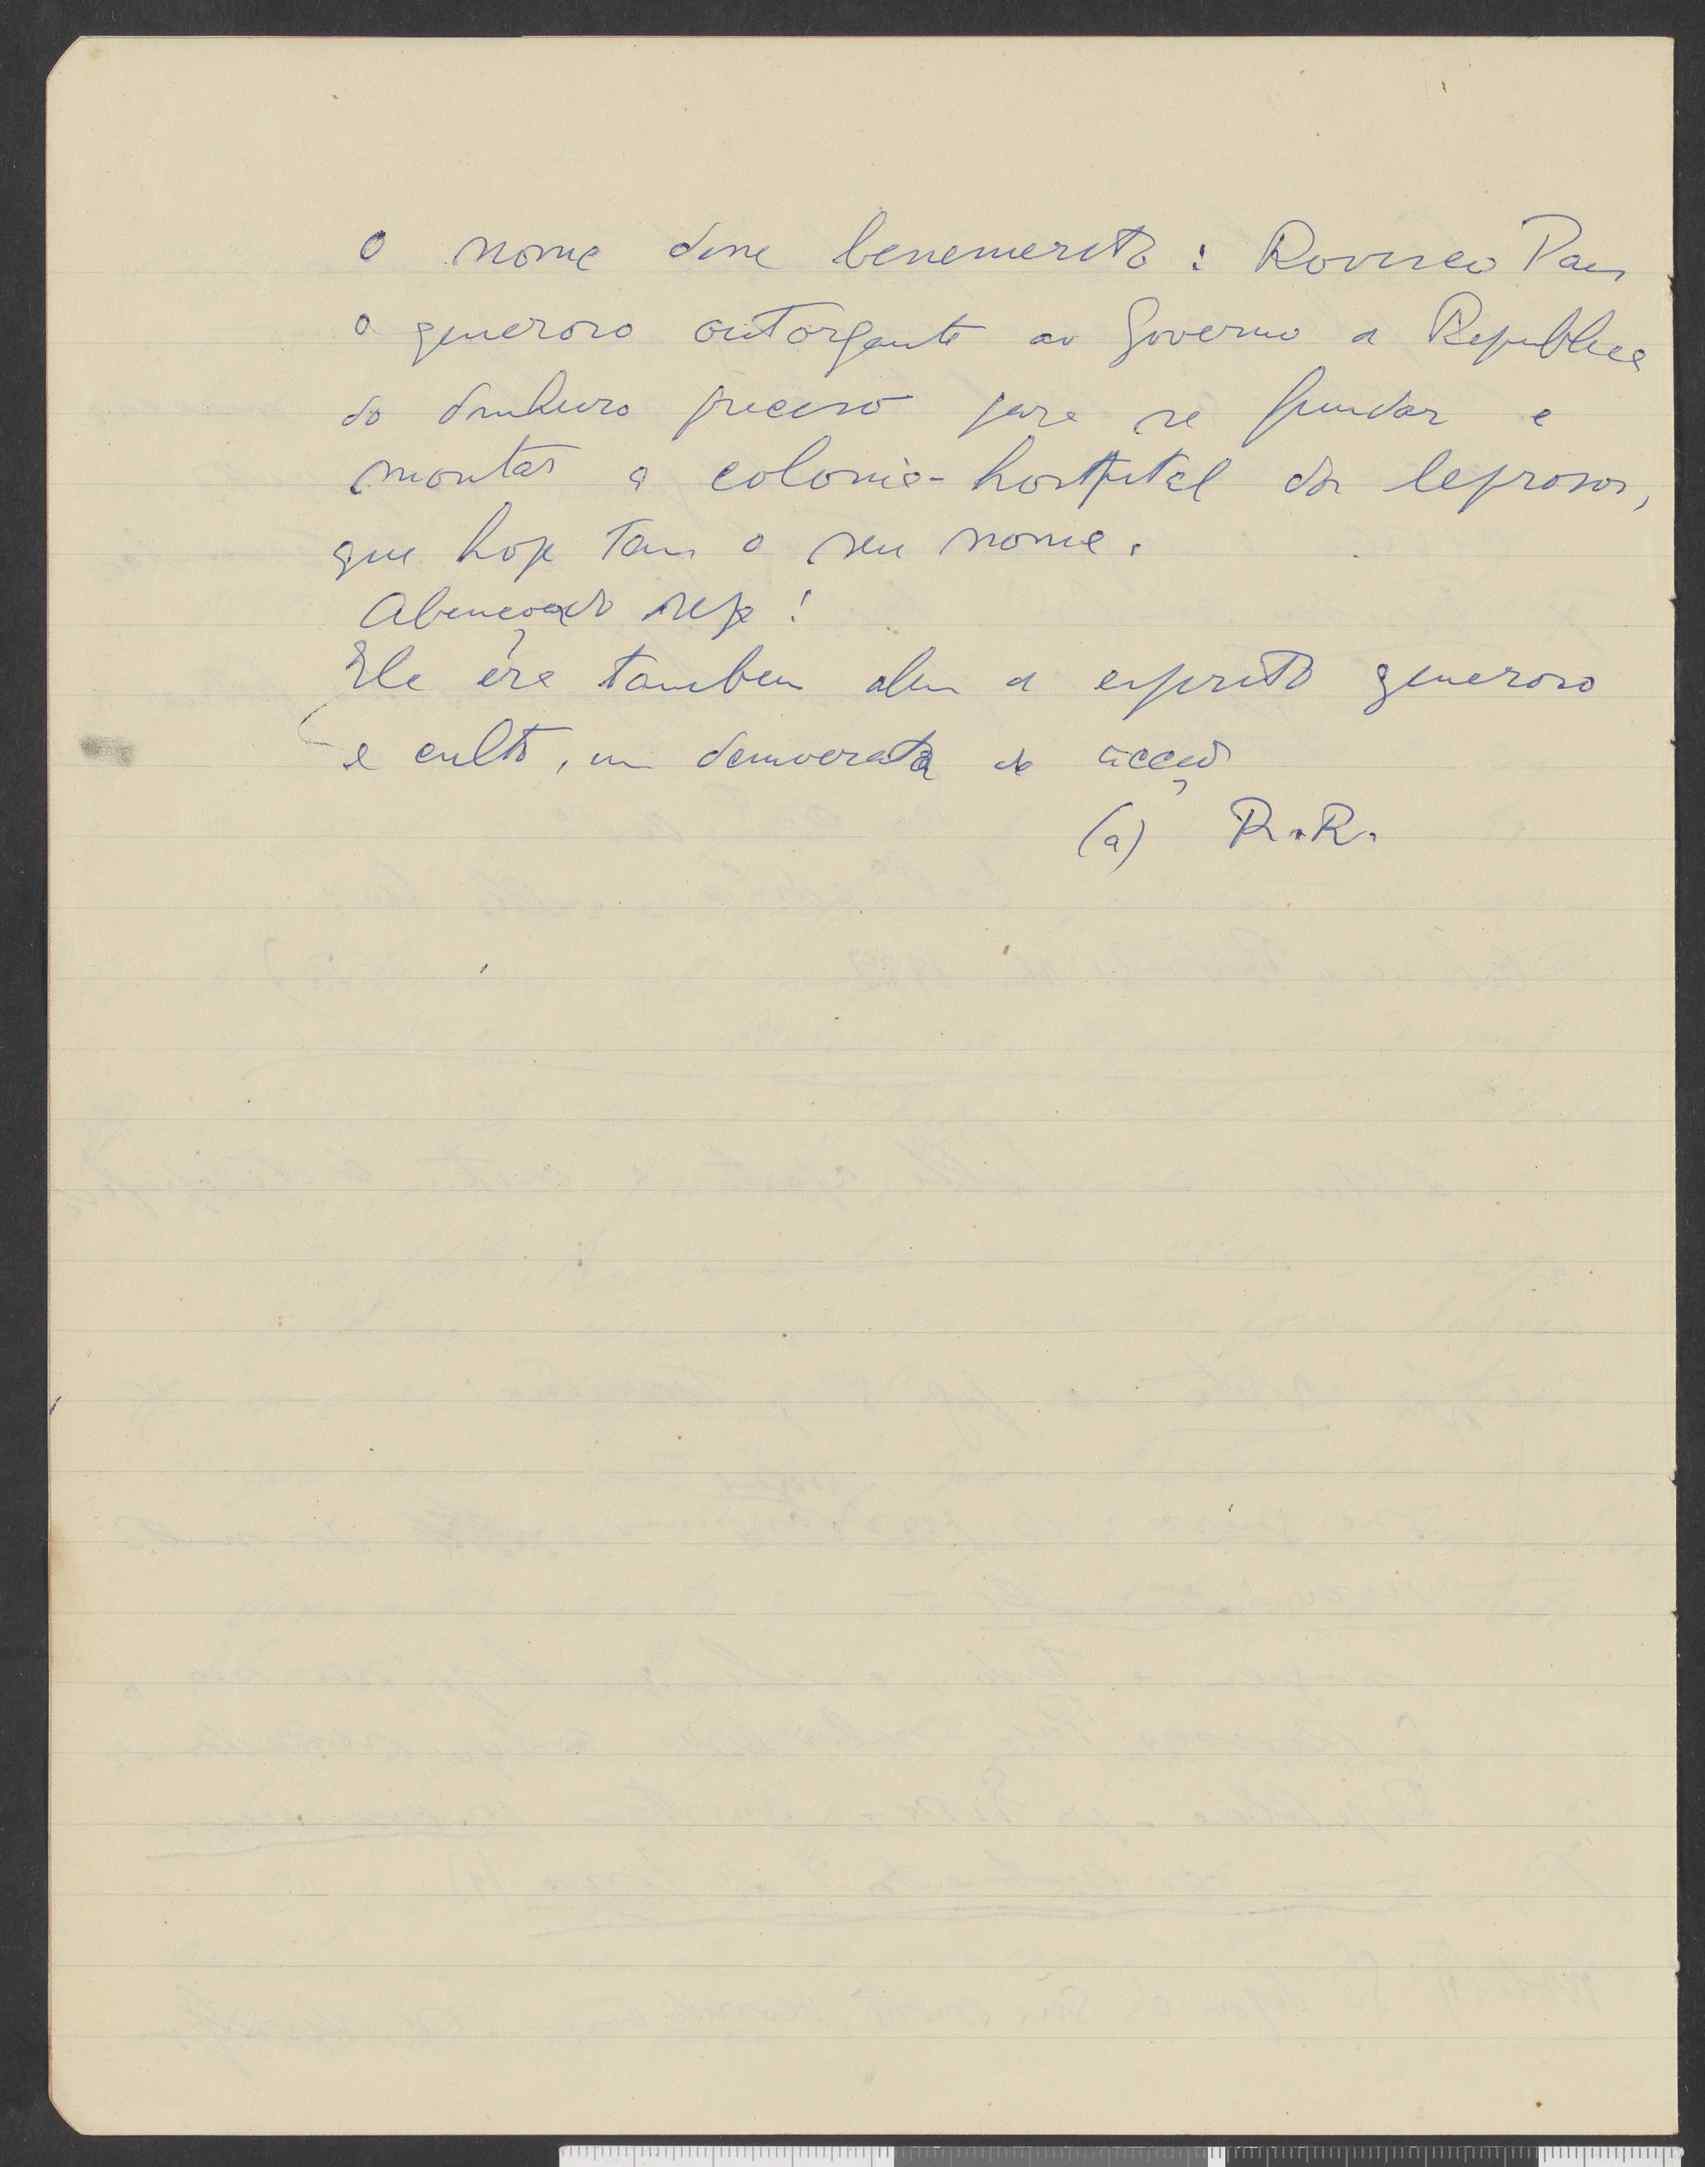 O nome desse benemerito: Rovisco Pais
o generoso outorgante ao Governo da Republica
do dinheiro preciso para se fundar e
montar a colonia-hospital dos leprosos,
que hoje tem o seu nome.
Abençoado seja!
Ele era tambem alem de espirito generoso
e culto, um democrata de acção
(a) R.R.